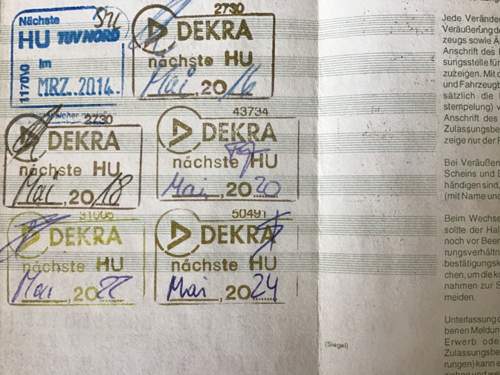 Nächste
HU TÜV NORD
im
MRZ. 2014
1170/0
2730
DEKRA
nächste HU
Mai, 2016
2730
DEKRA
nächste HU
Mai, 2018
43734
DEKRA
nächste HU
Mai, 2020
31006
DEKRA
nächste HU
Mai, 2022
50491
DEKRA
nächste HU
Mai, 2024
(Siegel)
Jede Veränder
Veräußerung de
zeugs sowie Ä
Anschrift des
sungsstelle für
zuzeigen. Mit
und Fahrzeugt
sätzlich die
stempelung)
Anschrift des
Zulassungsbe
zeige nur der F
Bei Veräußer
Scheins und B
händigen sind,
(mit Name un
Beim Wechse
sollte der Hal
noch vor Been
rungsverhältn
bestätigungsk
chen, um die k
nahmen zur S
meiden.
Unterlassung d
benen Meldun
Erwerb ode
Zulassungsbe
rungen) kann e